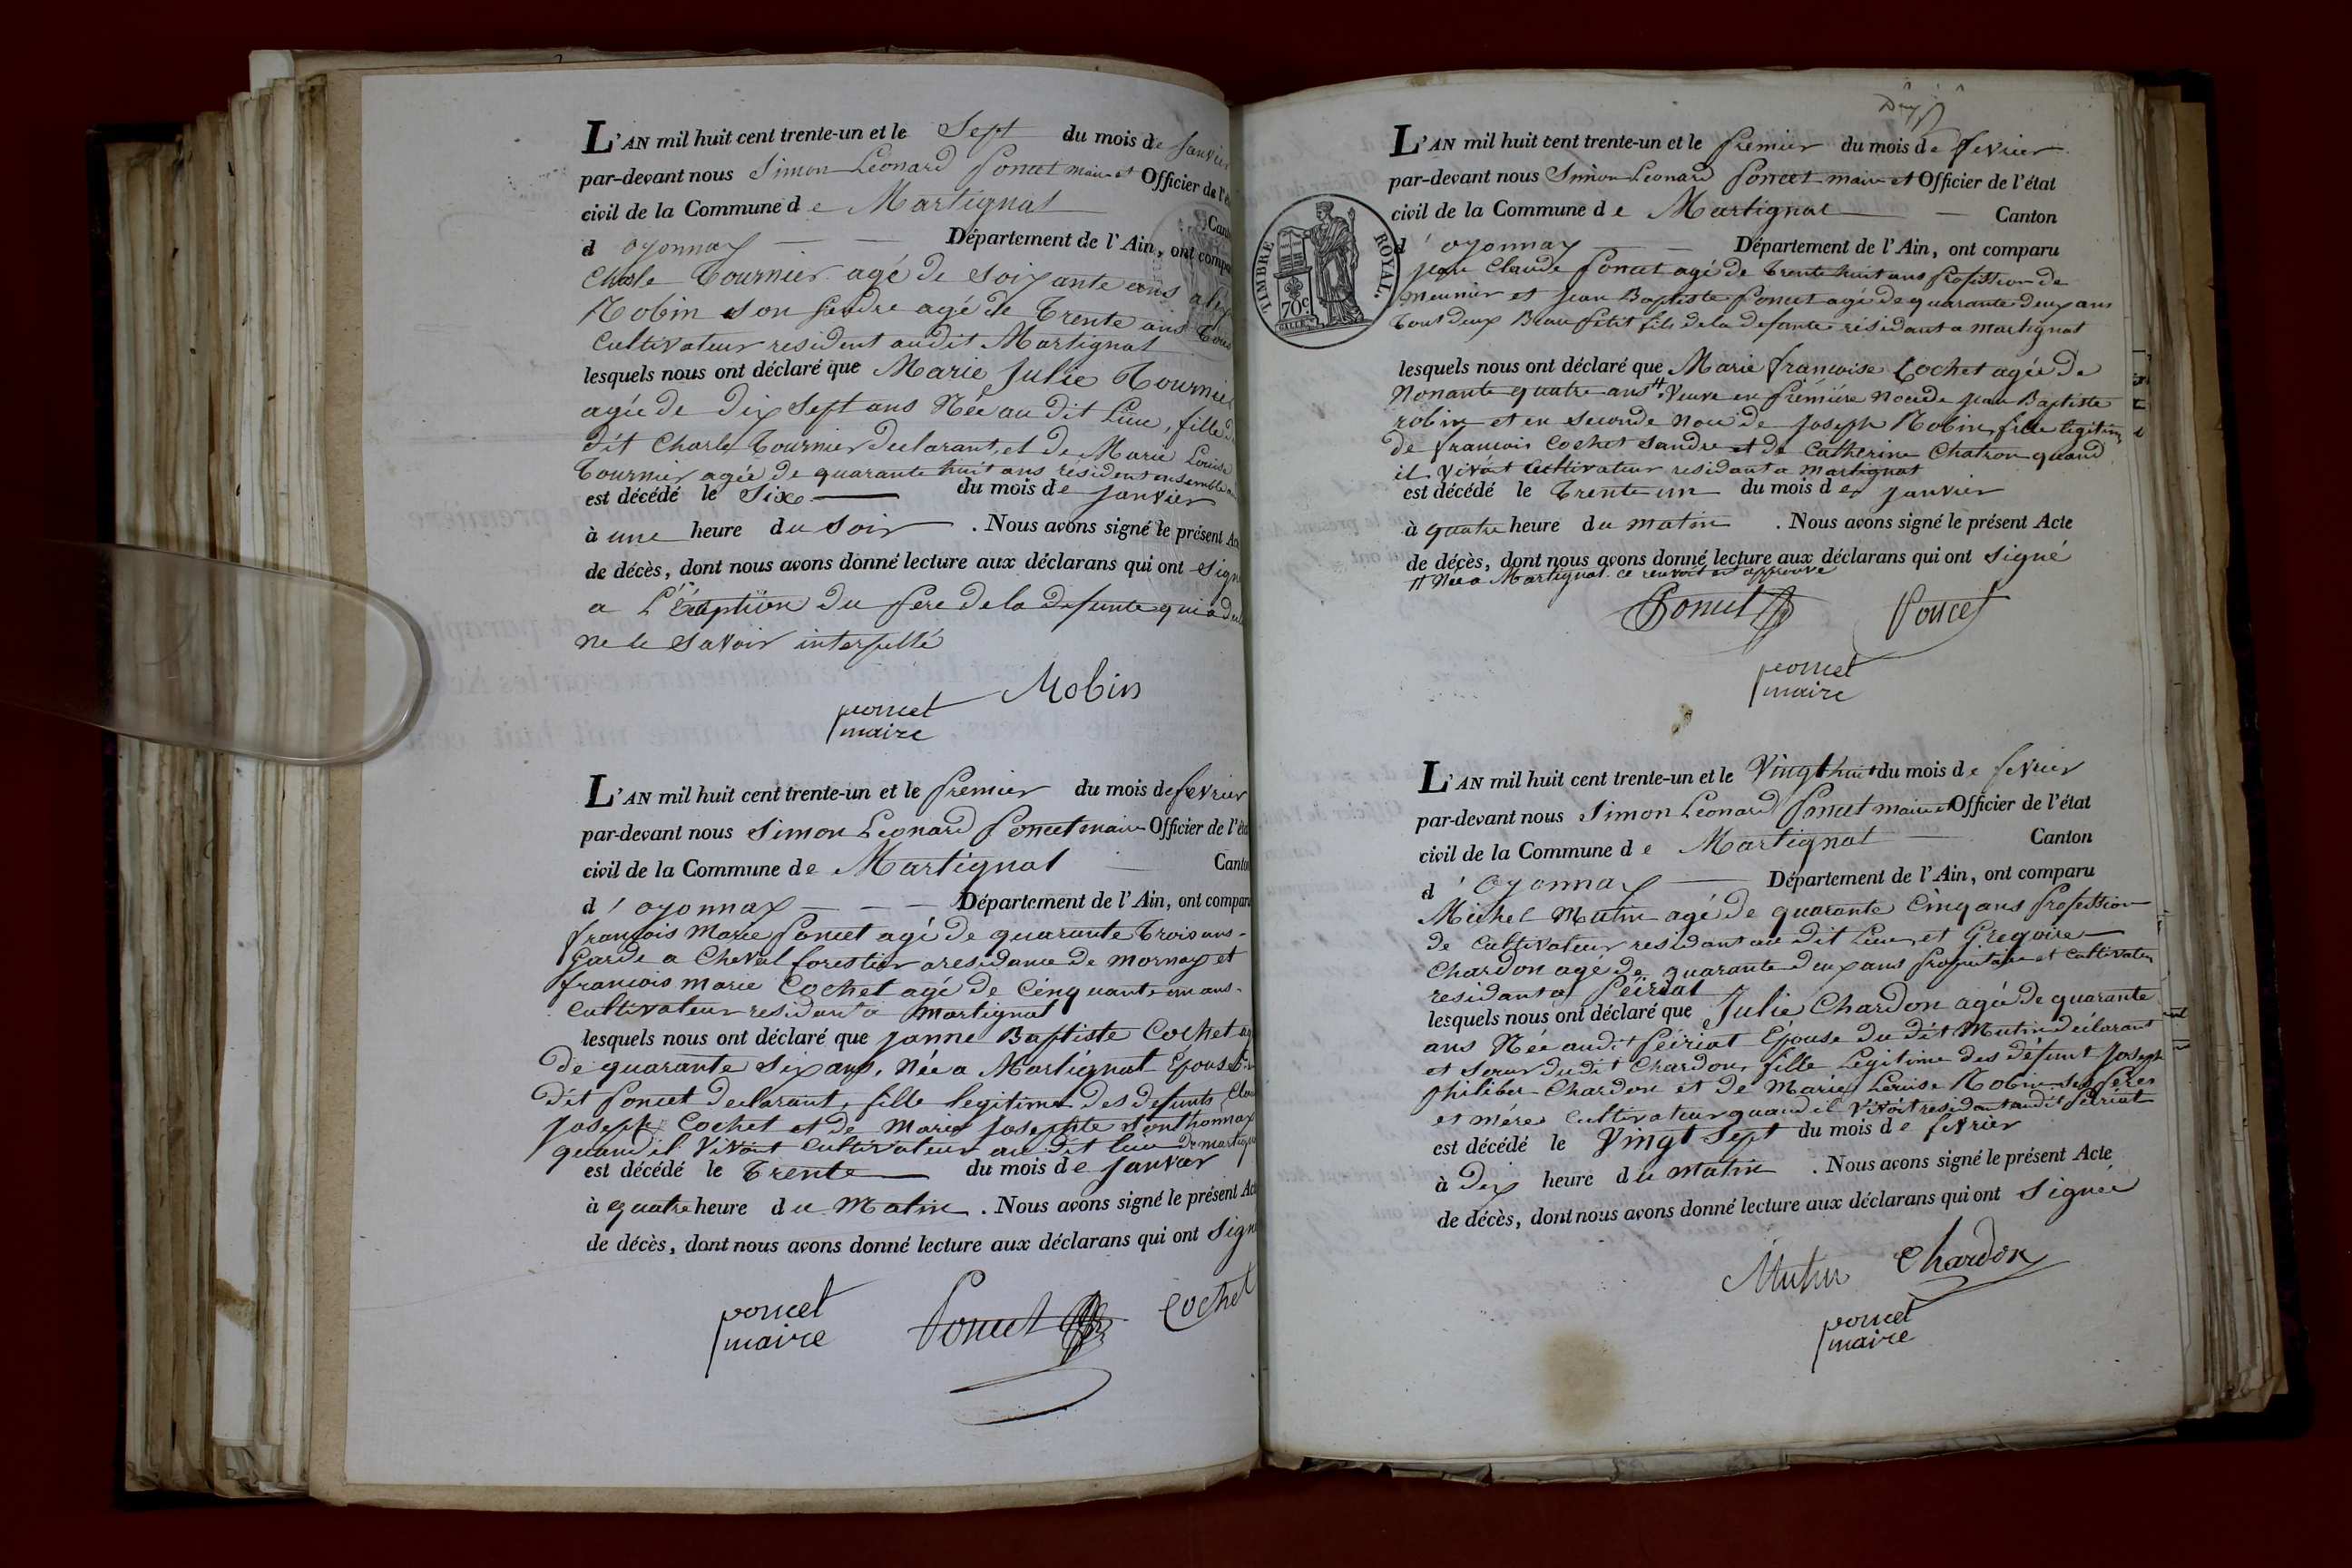 L'AN mil huit cent trente-un et le Sept du mois de Janvier
par-devant nous Simon Léonard Poncet maire et Officier de l'é
civil de la Commune de Martignat Cant
d oyonnax — — Département de l'Ain, ont compa
Charle Tournier agé de Soixante ans
Robin son Gendre agé de Trente ans Tous
Cultivateur resident audit Martignat
lesquels nous ont déclaré que Marie Julie Tournier
agée de Dix Sept ans Née au dit Lieu, fille d
dit Charle Tournier declarant, et de Marie Louise
Tournier agée de quarante huit ans resident ensemble
est décédé le Six — du mois de Janvier
à une heure du Soir . Nous avons signé le présent Ac
de décès, dont nous avons donné lecture aux déclarans qui ont Sign
a L'Exaption du Pere de la defunte qui a de
ne le Savoir interpellé
Robin
poncet
maire
L'AN mil huit cent trente-un et le Premier du mois de fevrier
par-devant nous Simon Leonard Poncet maire Officier de l'éta
civil de la Commune de Martignat — Canton
d'oyonnax — — — Département de l'Ain, ont compar
françois Marie Poncet agé de quarante Trois ans -
Garde a Cheval forestier a residance de Mornay et
francois marie Cochet agé de Cinquante un ans -
Cultivateur residant a Martignat
lesquels nous ont déclaré que Janne Baptiste Cochet ag
de quarante Six ans, Née a Martignat Epouse
dit Poncet declarant, fille legitime des defunts Clau
Joseph Cochet et de Marie Josephte Sonthonnax
quand il Vivoit Cultivateur au dit lieu de martigna
est décédé le Trente — du mois de Janvier
à quatre heure du Matin . Nous avons signé le présent Act
de décès, dont nous avons donné lecture aux déclarans qui ont Sign
poncet
maire
Poncet
Cochet
TIMBRE ROYAL.
70c.
L'AN mil huit cent trente-un et le Premier du mois de fevrier
par-devant nous Simon Leonard Poncet maire et Officier de l'état
civil de la Commune de Martignat — — Canton
d'oyonnax — — Département de l'Ain, ont comparu
jean Claude Poncet agé de Trente huit ans Profession de
meunier et Jean Baptiste Poncet agé de quarante deux ans
Tout deux Beau Petit fils de la defante résidant a Martignat
lesquels nous ont déclaré que Marie françoise Cochet agée de
Nonante quatre ans # Veuve en Prémiére Noce de jean Baptiste
robin et en Seconde Noce de Joseph Robin, fille legitime
de francois Cochet Sandre et de Catherine Chatron quand
il Vivoit Cultivateur residant a Martignat
est décédé le Trente un du mois de Janvier
à quatre heure du matin . Nous avons signé le présent Acte
de décès, dont nous avons donné lecture aux déclarans qui ont signé
# Née a Martignat. ce renvoit est approuvé
Poncet
Poncet
poncet
maire
L'AN mil huit cent trente-un et le Vingt huit du mois de fevrier
par-devant nous Simon Leonard Poncet maire et Officier de l'état
civil de la Commune de Martignat — Canton
d'Oyonnax — Département de l'Ain, ont comparu
Michel Mutin agé de quarante Cinq ans Profession
de Cultivateur residant au dit Lieu, et Gregoire
Chardon agé de quarante deux ans Propriétaire et Cultivateur
residant a Péiriat
lesquels nous ont déclaré que Julie Chardon agée de quarante
ans Née audit Péiriat Epouse du dit Mutin déclarant
et Sœur dudit Chardon, fille Légitime des défunt Joseph
Philiber Chardon et de Marie Louise Robin Ses Péres
et Méres Cultivateur quand il Vivoit residant audit Péiriat
est décédé le Vingt Sept du mois de fevrier
à Dix heure du Matin . Nous avons signé le présent Acte
de décès, dont nous avons donné lecture aux déclarans qui ont Signée
Mutin
Chardon
poncet
maire